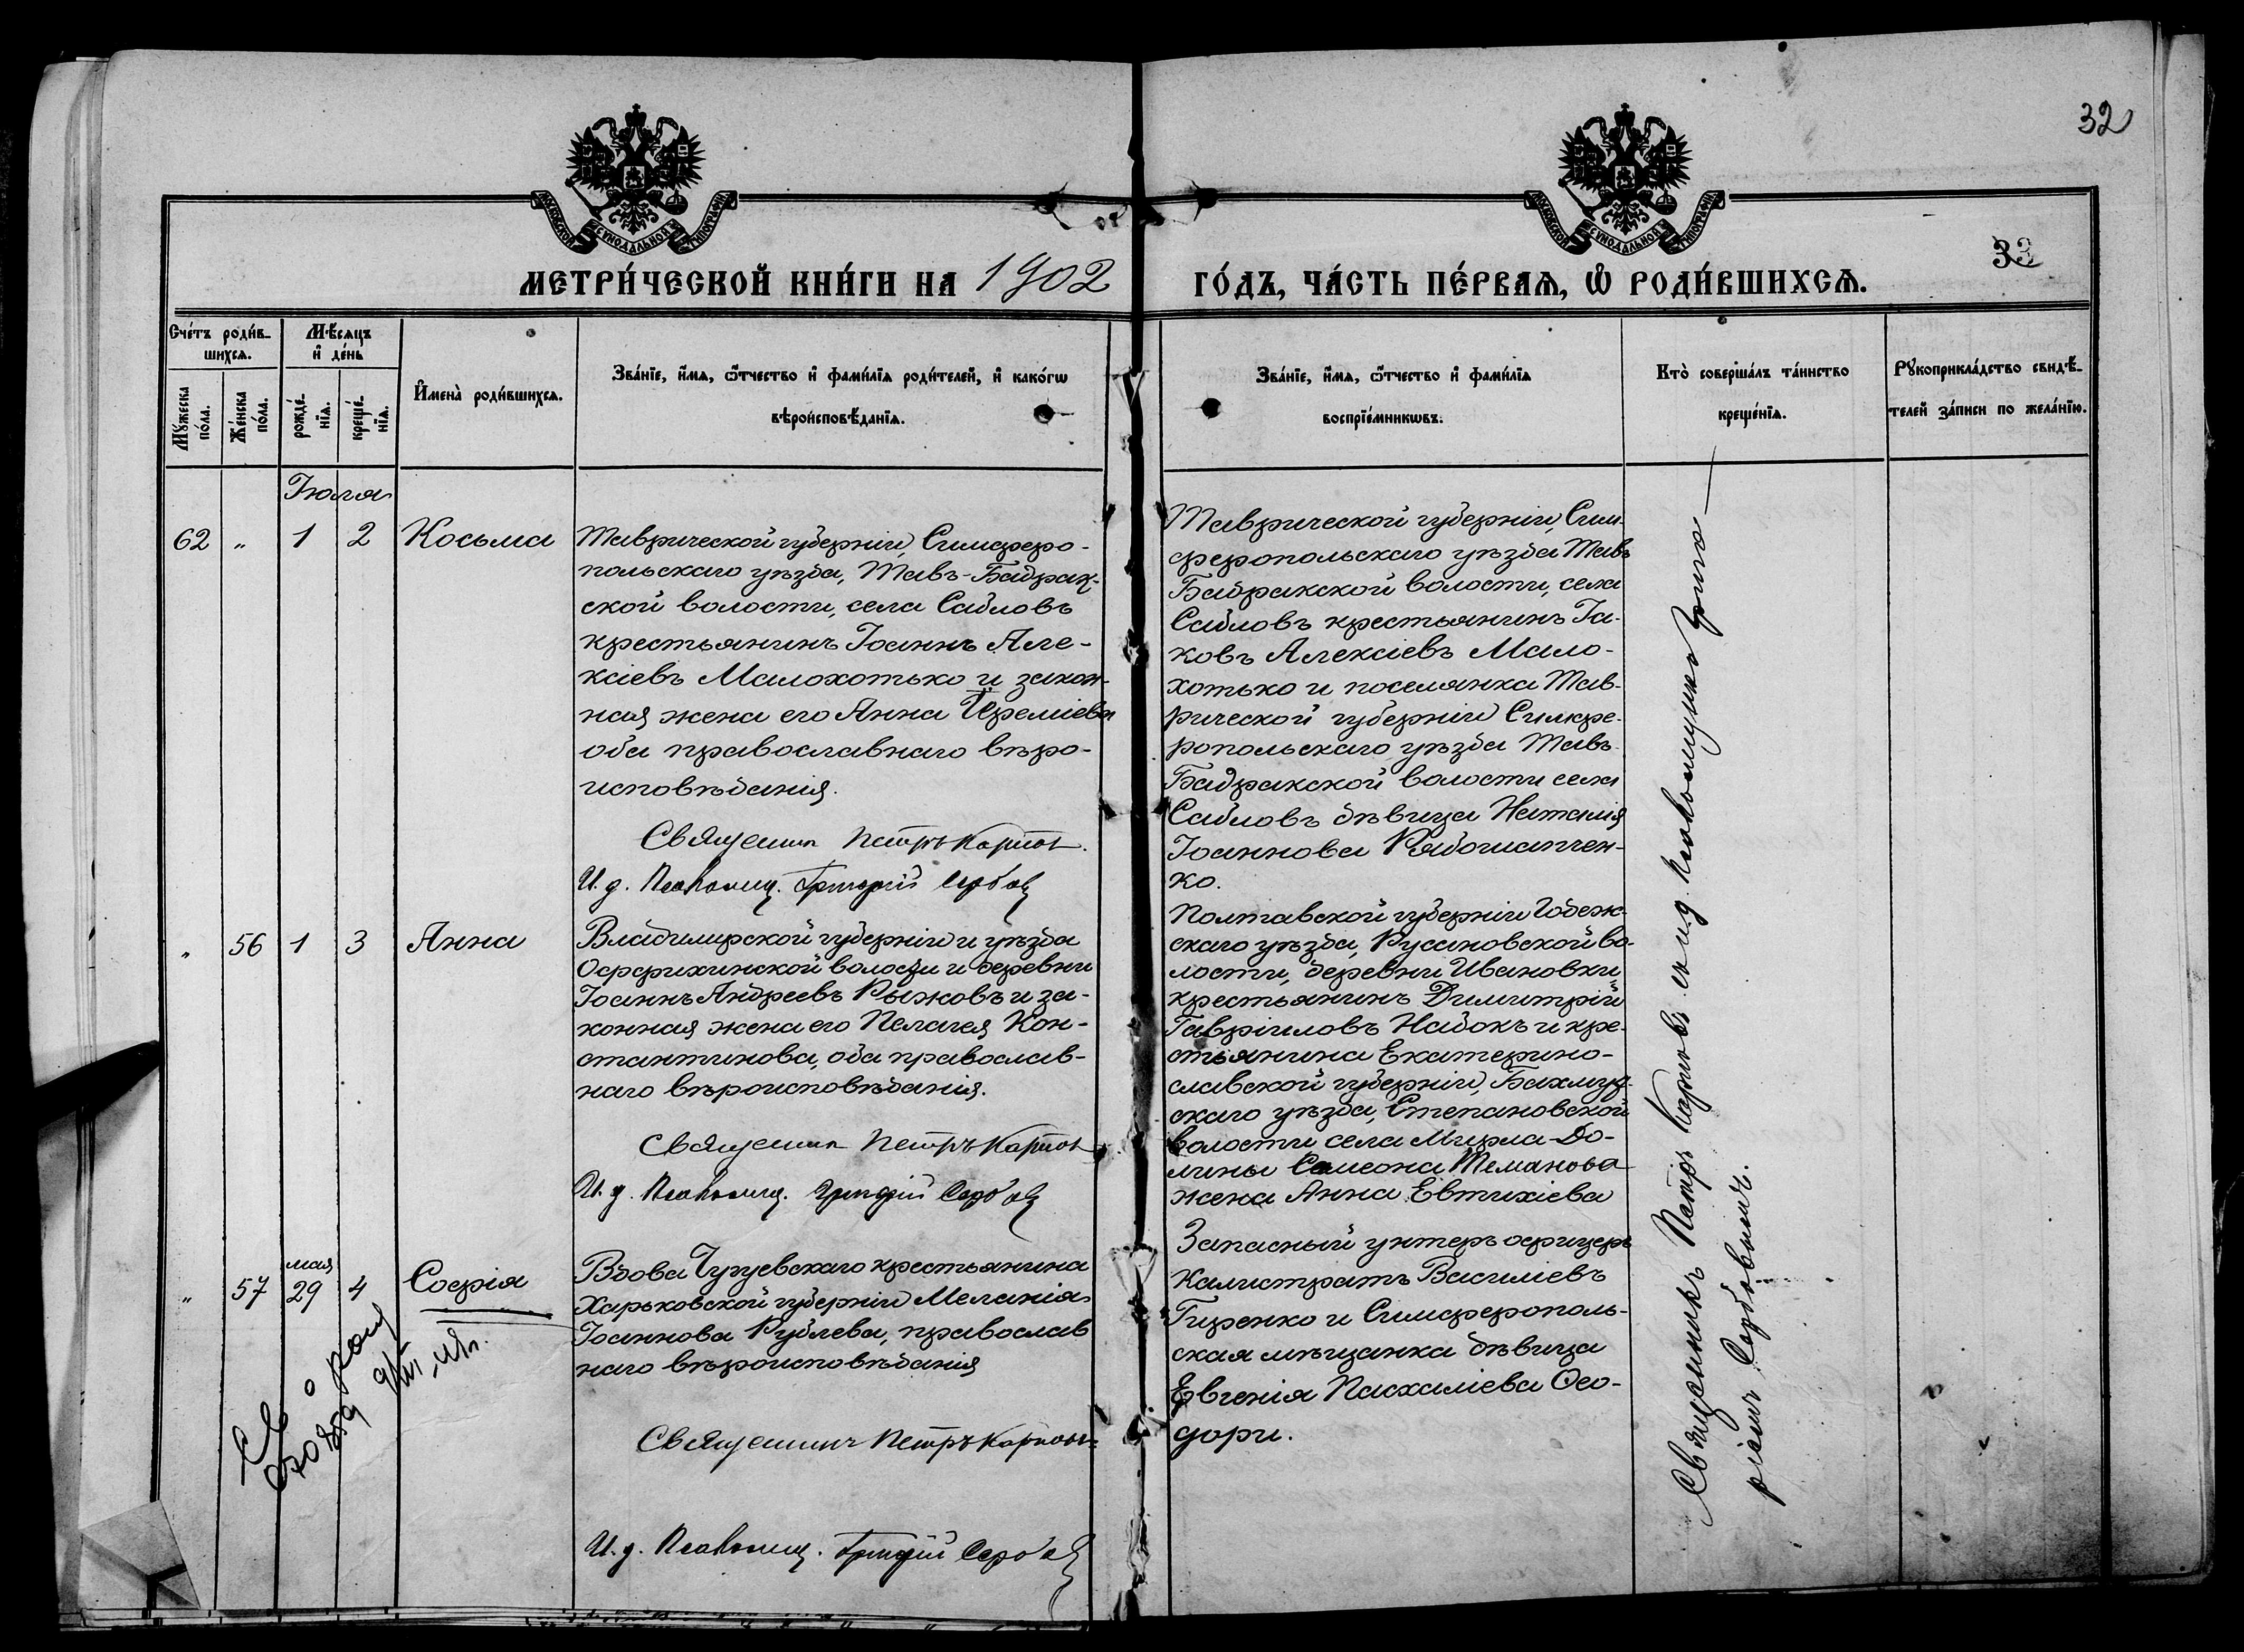 32
33
МОСКОВСКОЙ СѴНОДАЛЬНОЙ ТИПОГРАФІИ
МОСКОВСКОЙ СѴНОДАЛЬНОЙ ТИПОГРАФІИ
МЕТРИ́ЧЕСКОЙ КНИ́ГИ НА 1902
ГО́ДЪ, ЧА́СТЬ ПЕ́РВАѦ, Ѽ РОДИ́ВШИХСѦ.
Сче́тъ роди́в-
шихсѧ.
Мꙋ́жеска по́ла.
Же́нска по́ла.
Мѣ́сѧцъ
и҆ де́нь
рожде́-
нїѧ.
креще́-
нїѧ.
И҆мена̀ роди́вшихсѧ.
Зва́нїе, и҆́мѧ, ѻ҆́тчество и҆ фами́лїѧ роди́телей, и҆ како́гѡ
вѣроисповѣ́данїѧ.
Зва́нїе, и҆́мѧ, ѻ҆́тчество и҆ фами́лїѧ
воспрїе́мникѡвъ.
Кто̀ соверша́лъ та́инство
креще́нїѧ.
Рꙋкоприкла́дство свидѣ́-
телей за́писи по жела́нїю.
Іюля
62 „ 1 2 Косьма
Таврической губерніи, Симферо-
польскаго уѣзда, Тавъ-Бадрак-
ской волости, села Сабловъ
крестьянинъ Іоаннъ Але-
ксіевъ Малохотько и закон-
ная жена его Анна Іереміева
оба православнаго вѣро-
исповѣданія.
Священник Петръ Карпов.
И. д. Псаломщ. Григорій
Таврической губерніи, Сим-
феропольскаго уѣзда Тавъ
Бадракской волости, села
Сабловъ крестьянинъ Іа-
ковъ Алексіевъ Мало-
хотько и поселянка Тав-
рической губерніи Симфе-
ропольскаго уѣзда Тавъ-
Бадракской волости села
Сабловъ дѣвица Наталія
Іоаннова Рябошапчен-
ко.
„ 56 1 3 Анна
Владимирской губерніи и уѣзда
волости и деревни
Іоаннъ Андреевъ Рыжовъ и за-
конная жена его Пелагея Кон-
стантинова, оба православ-
наго вѣроисповѣданія.
Священник Петръ Карпов
И. д. Псаломщ. Григорій
Полтавской губерніи
скаго уѣзда, Русановской во-
лости, деревни Ивановки
крестьянинъ Димитрій
Гавріиловъ Набокъ и кре-
стьянина Екатерино-
славской губерніи, Бахмут-
скаго уѣзда, Степановской
волости села Мирла-До-
лины Симеона Теманова
жена Анна Евтихіева
„ 57 мая 29 4 Софія
Вдова Чугуевскаго крестьянина
Харьковской губерніи Меланія
Іоаннова Рублева, православ
наго вѣроисповѣданія
Священникъ Петръ Карповъ
И. д. Псаломщ. Григорій
Запасный унтеръ офицеръ
Калистратъ Василіевъ
Гиренко и Симферополь-
ская мѣщанка дѣвица
Евгенія Пасхаліева Ѳео-
дори.
Священникъ Петръ Карповъ съ и. д. псаломщика Григо-
ріемъ